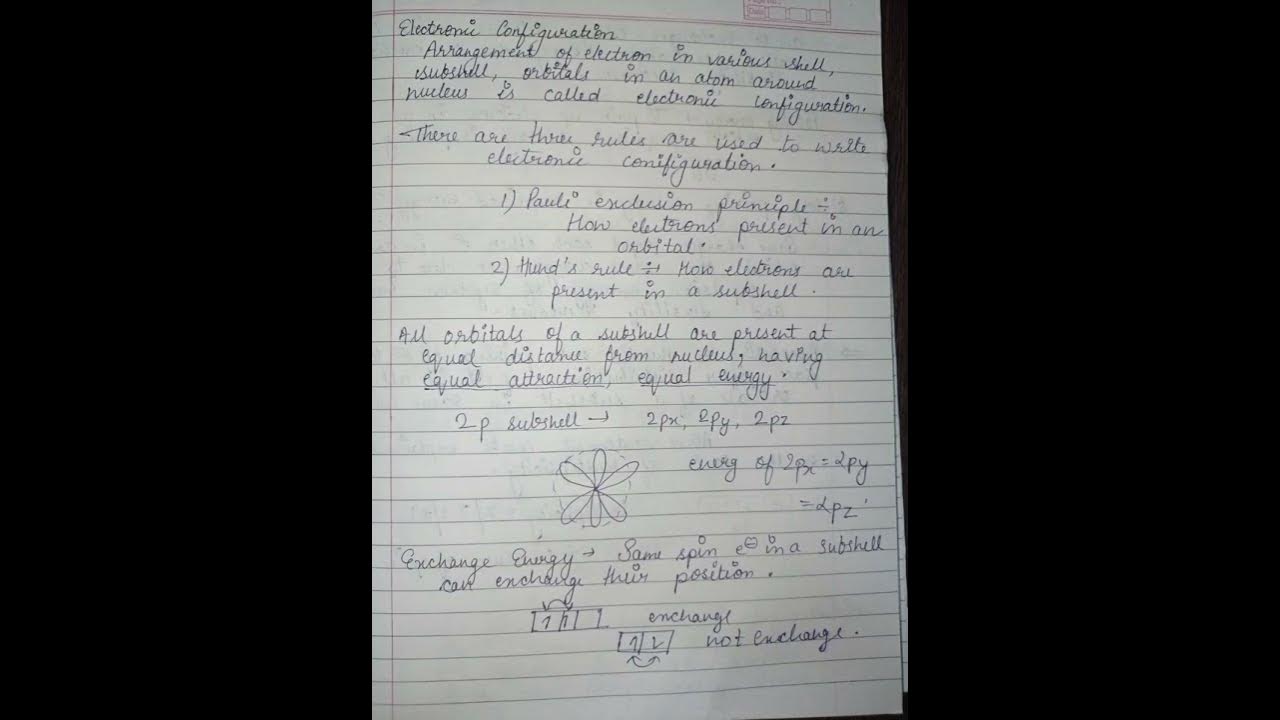 Electronic Configuration
Arrangement of electron in various shell,
subshell, orbitals in an atom around
nucleus is called electronic configuration.
There are three rules are used to write
electronic conifiguration.
1) Pauli exclusion principle ÷
How electrons present in an
orbital.
2) Hund's rule ÷→ How electrons are
present in a subshell.
All orbitals of a subshell are present at
equal distance from nucleus, having
equal attraction, equal energy.
2p subshell → 2px, 2py, 2pz
energ of 2px = 2py
= 2pz
Exchange Energy → Same spin e⊖ in a subshell
can exchange their position.
[1|1| ] exchange
[1|2] not exchange.